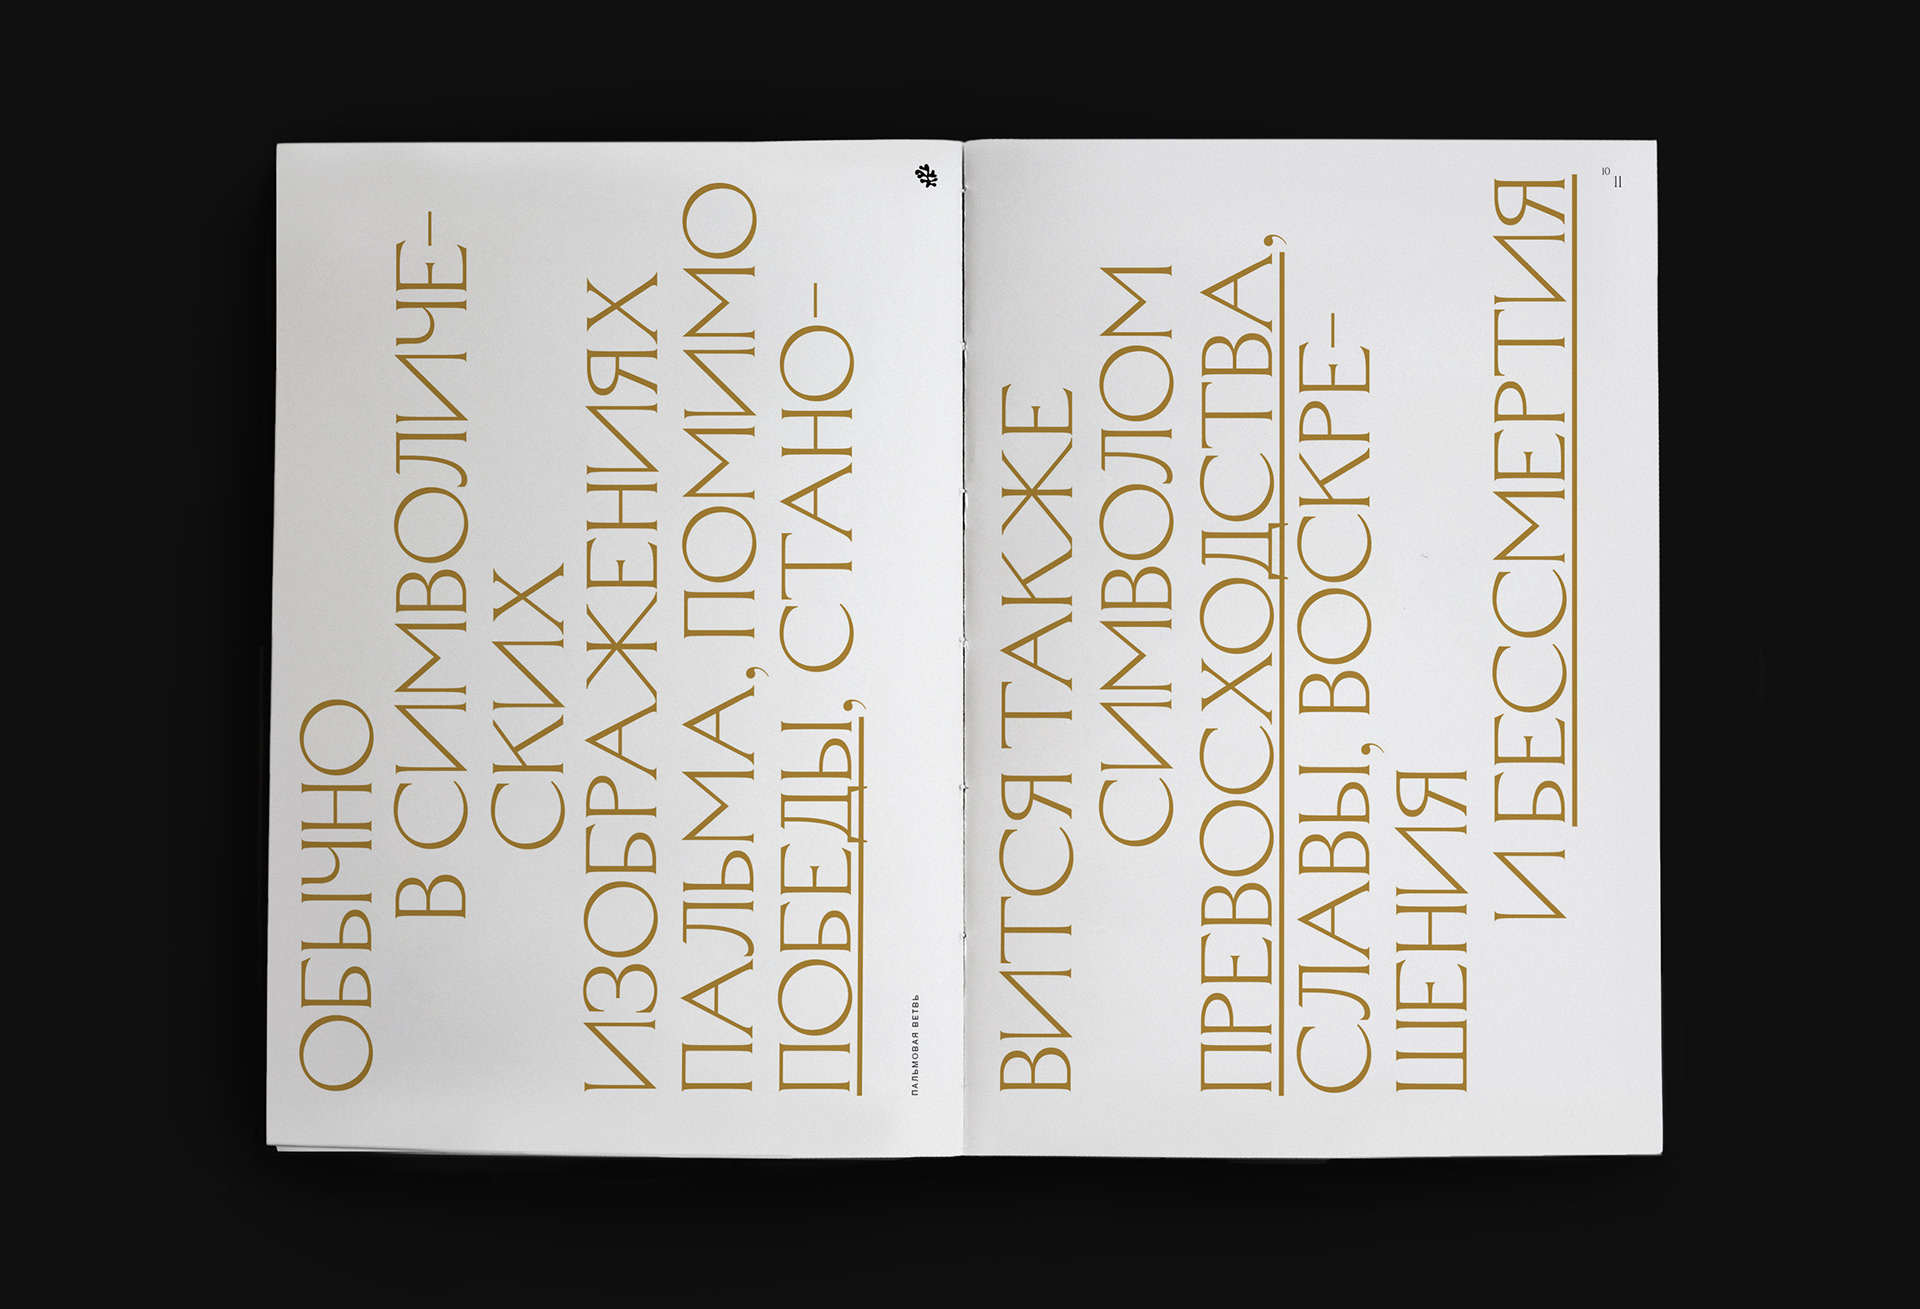 ОБЫЧНО
В СИМВОЛИЧЕ-
СКИХ
ИЗОБРАЖЕНИЯХ
ПАЛЬМА, ПОМИМО
ПОБЕДЫ, СТАНО-
ПАЛЬМОВАЯ ВЕТВЬ
ВИТСЯ ТАКЖЕ
СИМВОЛОМ
ПРЕВОСХОДСТВА,
СЛАВЫ, ВОСКРЕ-
ШЕНИЯ
И БЕССМЕРТИЯ
10
11